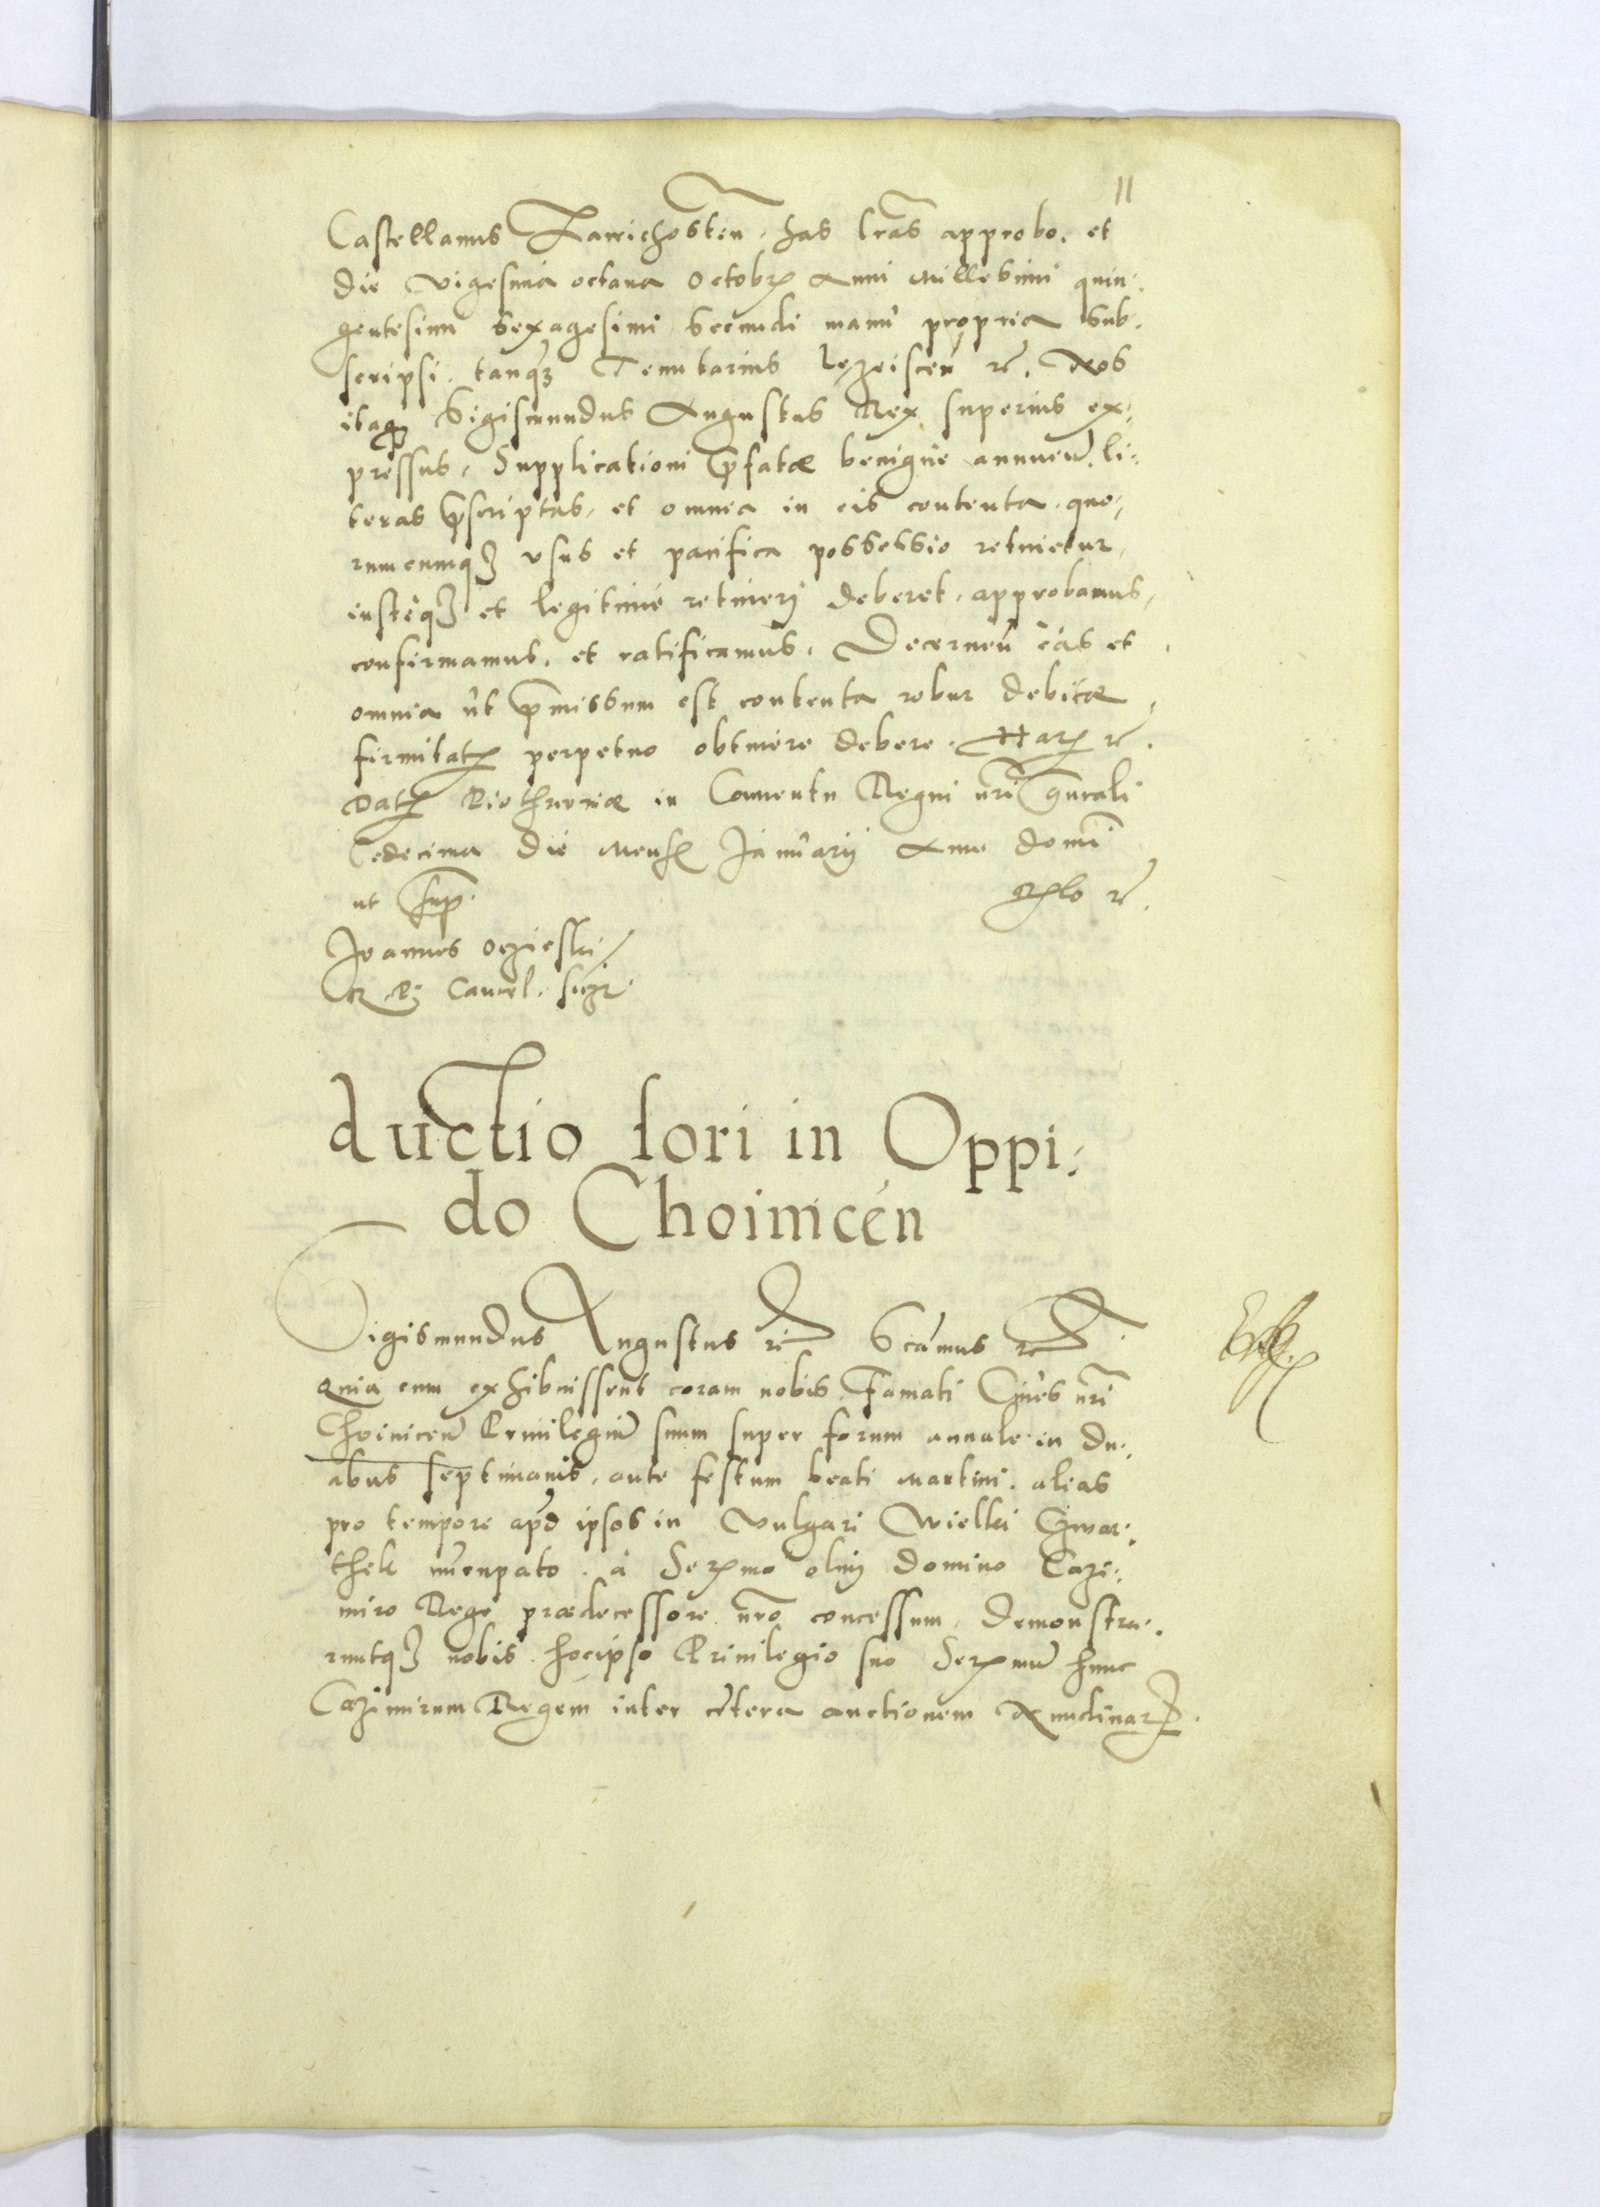 11
Castellanus Zawichosten. has lras approbo. et
die vigesima octava Octobr Anni Millesimi quin:
gentesimi Sexagesimi Secundi manu propria sub:
scripsi. tanq3 Tenutarius rc. Nos
itaq3 Sigismundus Augustus Rex superius ex:
pressus, Supplicationi pfatæ benigne annuen. li:
teras pscriptas, et omnia in eis contenta. quo:
rumcumq3 usus et pacifica possessio retinetur,
iusteq3 et legitime retinerj deberet, approbamus,
confirmamus, et ratificamus, Decernen eas et
omnia ut pmissum est contenta robur debitæ
firmitatis perpetuo obtinere debere. Harum rc.
Datum Piothrcoviæ in Conventu Regni nri gnrali
Sedecima die Mensis Januarij Anno Domi
ut sup. rc.
Joannes Oczieski
R. P. Cancel. sster.
Auctio fori in Oppi:
do Choinicen
Sigismundus Augustus rc Scamus rc
Quia cum exhibuissent coram nobis Famati Cives nri
Choinicen Privilegium suum super forum annale in du:
abus septimanis, ante festum beati Martini. alias
pro tempore apud ipsos in vulgari Wielki Czwar:
thek nuncupato. à Sermo olim Domino Cazi:
miro Rege prædecessore nro concessum, Demonstra:
runtq3 nobis hocipso Privilegio suo Sermum hunc
Cazimirum Regem inter cetera auctionem Nundinarum.